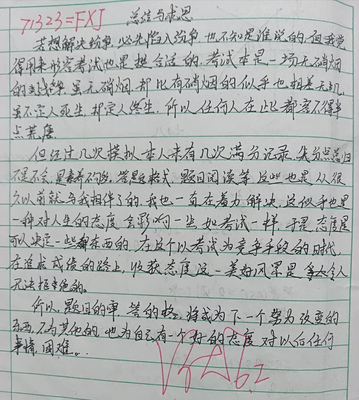 71323=FXJ
总结与永思
若想解决纷争,必先陷入纷争,也不知是谁说的,但我觉
得用来形容考试也是挺合适的,考试本是一场无硝烟
的战争,虽无硝烟,却比有硝烟的似乎也相差无几,
虽不定人死生,却定人终生,所以任何人在此都容不得半
点荒废。
但经过几次模拟,本人未有几次满分记录,失分点总归
不是不会,是素养不够,答题格式,题目阅读等,这些也是从很
久以前就与我相伴了的,我也一直在着力解决,这似乎也是
一种对人生的态度,会影响一些,如考试一样,于是态度是
可以决定一些东西的,在这个以考试为竞争手段的时代,
在追求成绩的路上,收获态度这一美好风景是多么令人
无法拒绝的。
所以,题目的审,答的格,将成为下一个努力改变的
东西,不为其他的,也为自己有一个好的态度,对以后任何
事情,困难。